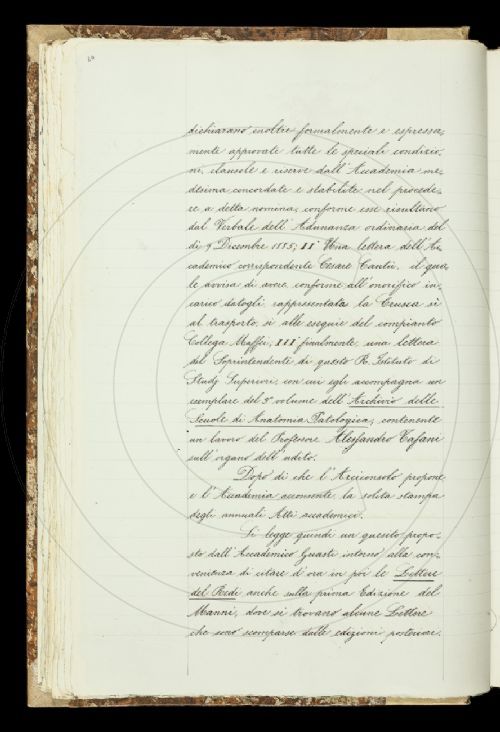 dichiarano inoltre formalmente e espressa,
mente approvate tutte le speciali condizio,
ni, clausole e riserve dall'Accademia me,
desima concordate e stabilite nel procede,
re a detta nomina, conforme esse risultano
dal Verbale dell'Adunanza ordinaria del
dì 9 Dicembre 1885; II° Una lettera dell'Ac,
cademico corrispondente Cesare Cantù, il qua,
le avvisa di avere, conforme all'onorifico in,
carico datogli rappresentata la Crusca sì
al trasporto, sì alle esequie del compianto
Collega Maffei; III finalmente una lettera
del Soprintendente di questo R. Istituto di
Studj Superiori, con cui egli accompagna un
esemplare del 3° volume dell'Archivio delle
Scuole di Anatomia Patologica, contenente
un lavoro del Professore Alessandro Tafani
sull'organo dell'udito.
Dopo di che l'Arciconsolo propone
e l'Accademia acconsente la solita stampa
degli annuali Atti accademici.
Si legge quindi un quesito propo,
sto dall'Accademico Guasti intorno alla con,
venienza di citare d'ora in poi le Lettere
del Redi anche sulla prima Edizione del
Manni, dove si trovano alcune Lettere
che sono scomparse dalle edizioni posteriori.